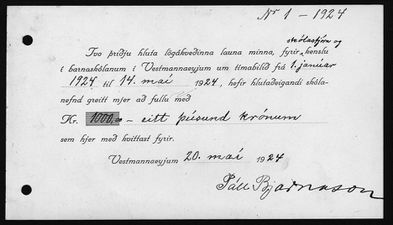 Nr 1 - 1924
skólastjórn og
Tvo þriðju hluta lögákveðinna launa minna, fyrir kenslu
í barnaskólanum í Vestmannaeyjum um tímabilið frá 1. janúar
1924 til 14. maí 1924, hefir hlutaðeigandi skóla-
nefnd greitt mjer að fullu með
Kr. 1000.00 - eitt þúsund krónum
sem hjer með kvittast fyrir.
Vestmannaeyjum 20. maí 1924
Páll Bjarnason